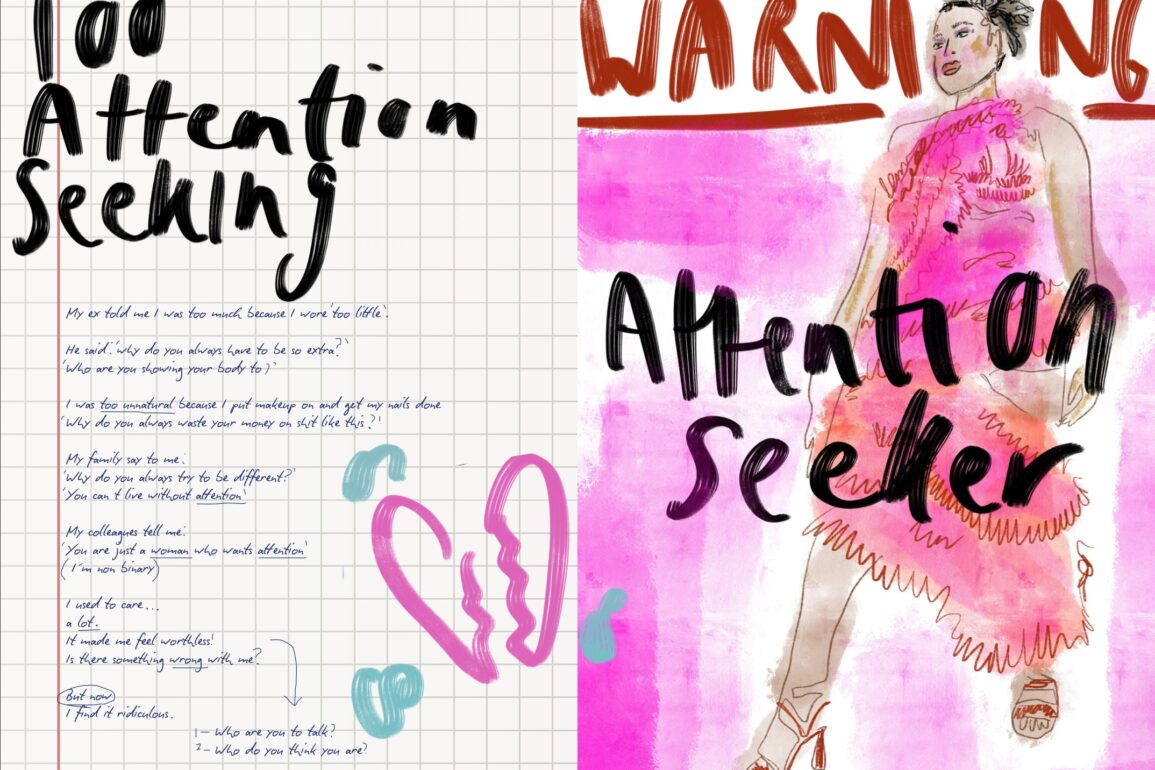 Too
Attention
Seeking
My ex told me I was too much because I wore 'too little'.
He said: 'why do you always have to be so extra?'
'Who are you showing your body to?'
I was too unnatural because I put makeup on and get my nails done
'Why do you always waste your money on shit like this?'
My family say to me:
'Why do you always try to be different?'
'You can't live without attention'
My colleagues tell me:
'You are just a woman who wants attention'
(I'm non binary)
I used to care...
a lot.
It made me feel worthless!
Is there something wrong with me?
But now
I find it ridiculous.
1 - Who are you to talk?
2 - Who do you think you are?
WARNING
Attention
Seeker